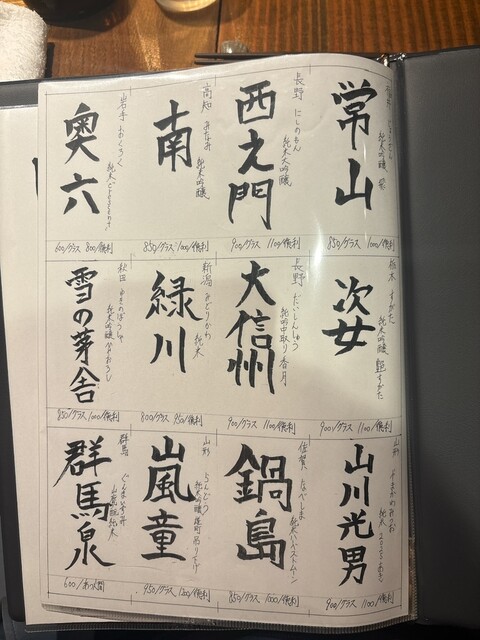 常山
純米吟醸
850/グラス 1000/徳利
長野 にしのもん
純米大吟醸
西之門
900/グラス 1100/徳利
高知 みなみ
純米吟醸
南
850/グラス 1000/徳利
岩手 おくろく
純米
奥六
600/グラス 800/徳利
栃木 すがた
純米吟醸
姿
900/グラス 1100/徳利
長野 だいしんしゅう
純吟中取り 香月
大信州
900/グラス 1100/徳利
新潟 みどりかわ
純米
緑川
800/グラス 950/徳利
秋田 ゆきのぼうしゃ
純米吟醸
雪の茅舎
850/グラス 1000/徳利
山形 やまかわみつお
純米 2025 あき
山川光男
900/グラス 1100/徳利
佐賀 なべしま
鍋島
850/グラス 1000/徳利
山形 らんどう
純米吟醸
嵐童
950/グラス 1200/徳利
群馬 ぐんまいずみ
山廃 純米
群馬泉
600/